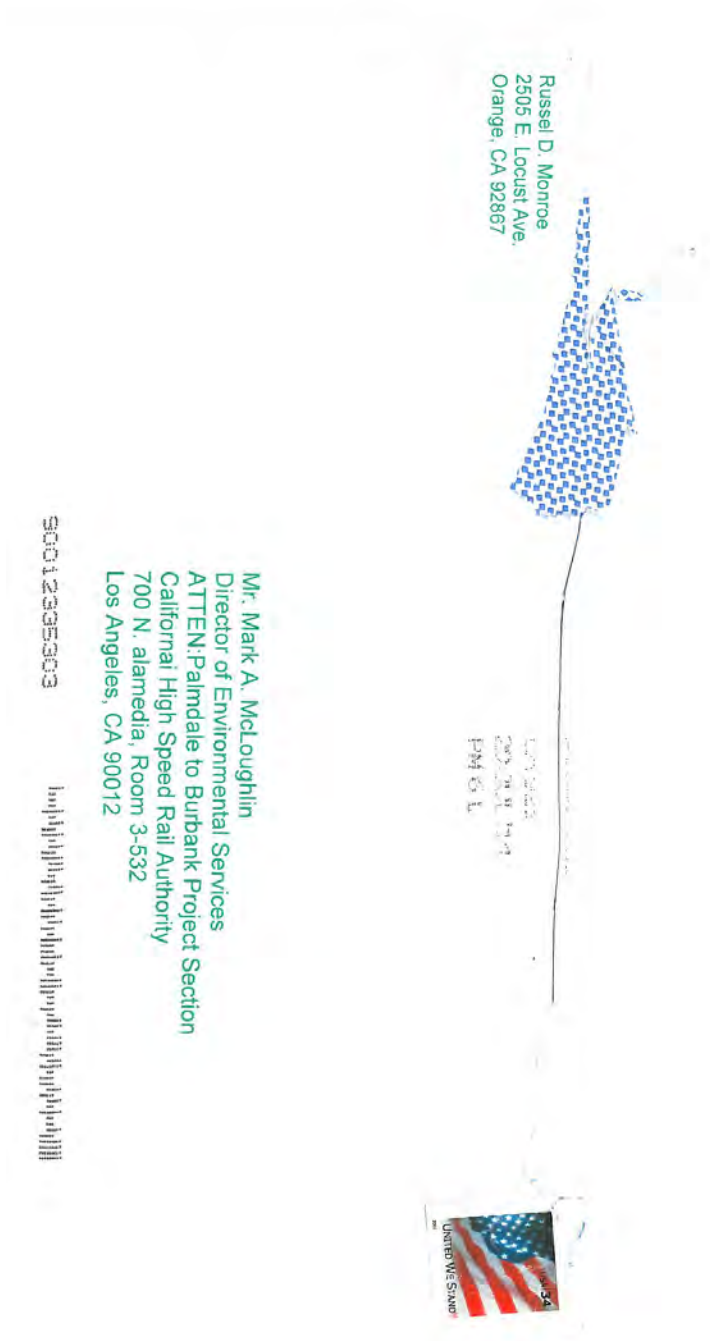 Russel D. Monroe
2505 E. Locust Ave.
Orange, CA 92867
USA 34
UNITED WE STAND
Mr. Mark A. McLoughlin
Director of Environmental Services
ATTEN:Palmdale to Burbank Project Section
Californai High Speed Rail Authority
700 N. alamedia, Room 3-532
Los Angeles, CA 90012
PM 6 L